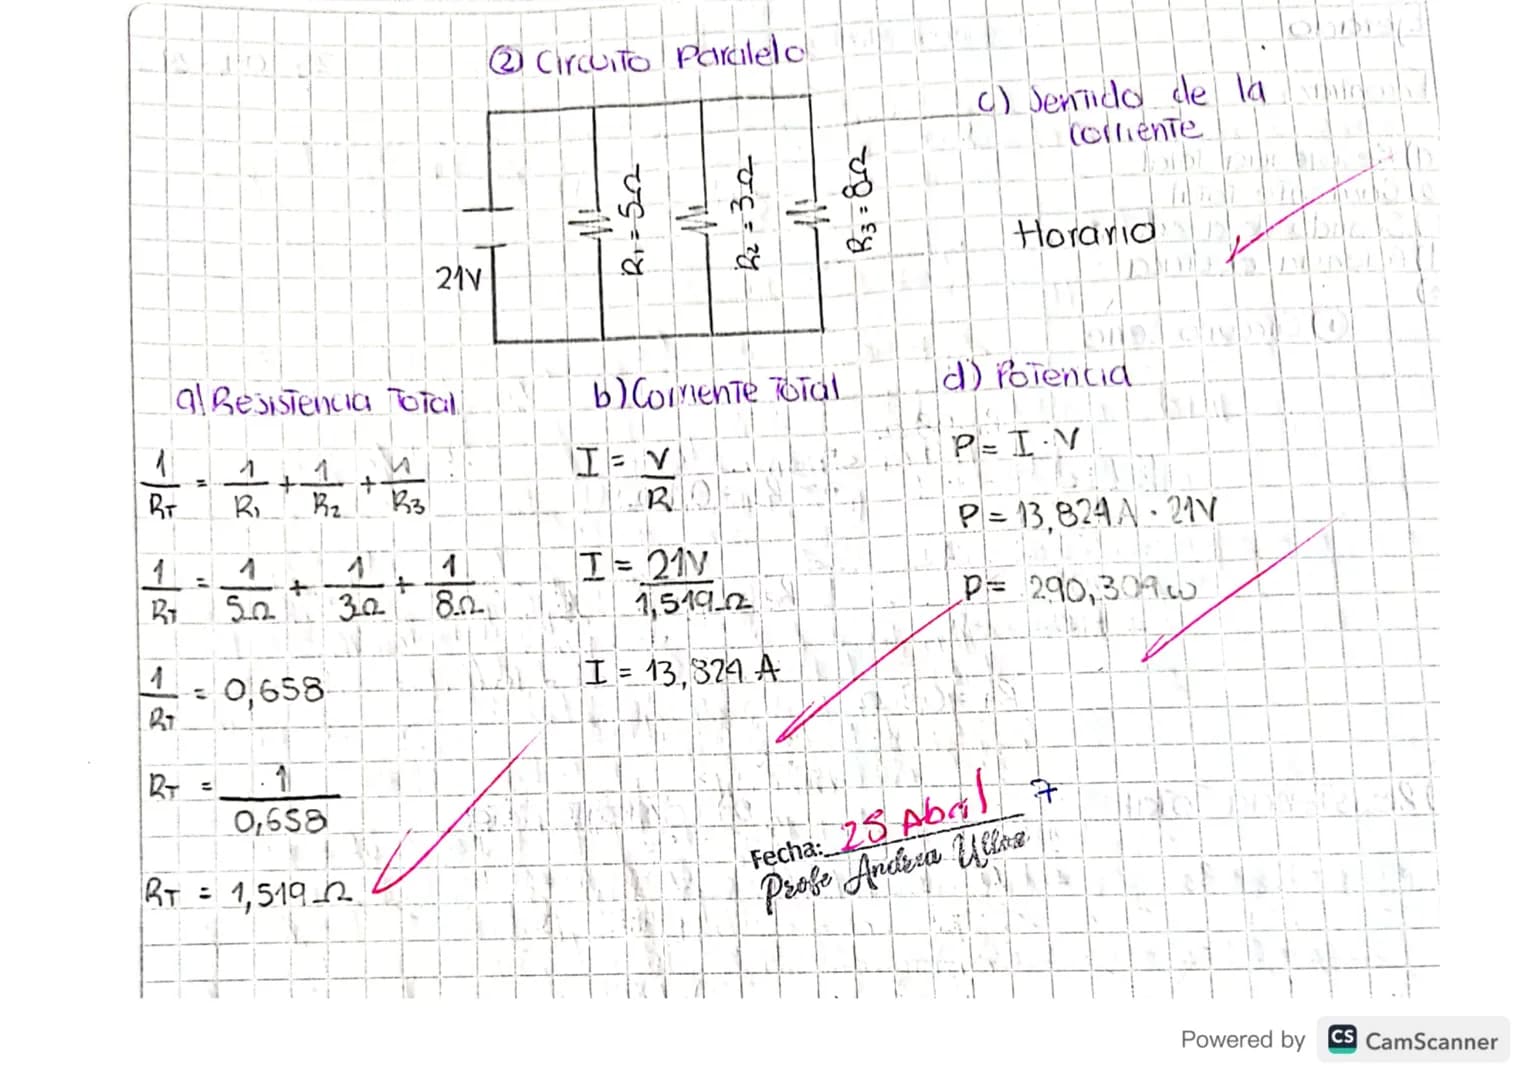 ② Circuito Paralelo
21V
R₁ = 5Ω
R₂ = 3Ω
R₃ = 8Ω
c) Sentido de la
corriente
Horario
a) Resistencia Total
1/R_T = 1/R₁ + 1/R₂ + 1/R₃
1/R_T = 1/5Ω + 1/3Ω + 1/8Ω
1/R_T = 0,658
R_T = 1/0,658
R_T = 1,519 Ω
b) Corriente Total
I = V/R
I = 21V/1,519 Ω
I = 13,824 A
d) Potencia
P = I · V
P = 13,824 A · 21V
P = 290,304 w
Fecha: 25 Abril 7
Profe Andrea Ulloa
Powered by CS CamScanner